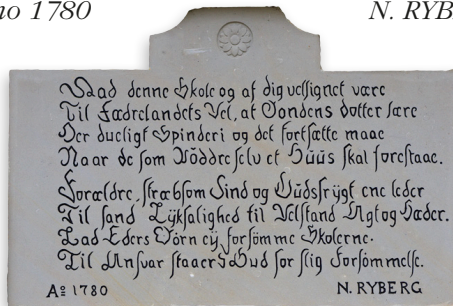 no 1780 N. RYB
Laad denne Skole og af dig velsignet være
Til Fædrelandets Vel, at Bondens døtter lære
Her dueligt Spinderi og det fortsætte maae
Naar de som Mŏddre selv et Hŭŭs skal forestaae.
Forældre, stræbsom Sind og Gŭdsfrÿgt ene leder
Til sand Lÿksalighed til Velstand Agt og Hæder.
Lad Eders Börn eÿ forsömme Skolerne.
Til Ansvar staaer I Gud for slig Forsömmelse.
Aº 1780 N. RYBERG